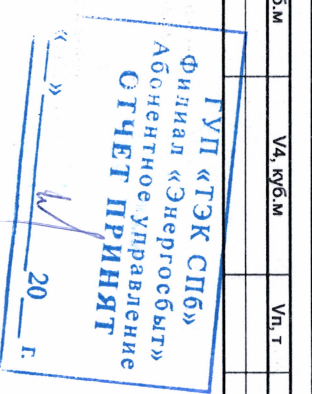 б.м
V4, куб.м
Vп, т
ГУП «ТЭК СПб»
Филиал «Энергосбыт»
Абонентное управление
ОТЧЕТ ПРИНЯТ
«__» ________ 20__ г.